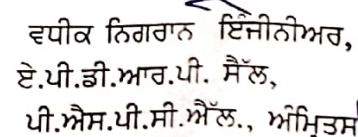 ਵਧੀਕ ਨਿਗਰਾਨ ਇੰਜੀਨੀਅਰ,
ਏ.ਪੀ.ਡੀ.ਆਰ.ਪੀ. ਸੈੱਲ,
ਪੀ.ਐਸ.ਪੀ.ਸੀ.ਐੱਲ., ਅੰਮ੍ਰਿਤਸ